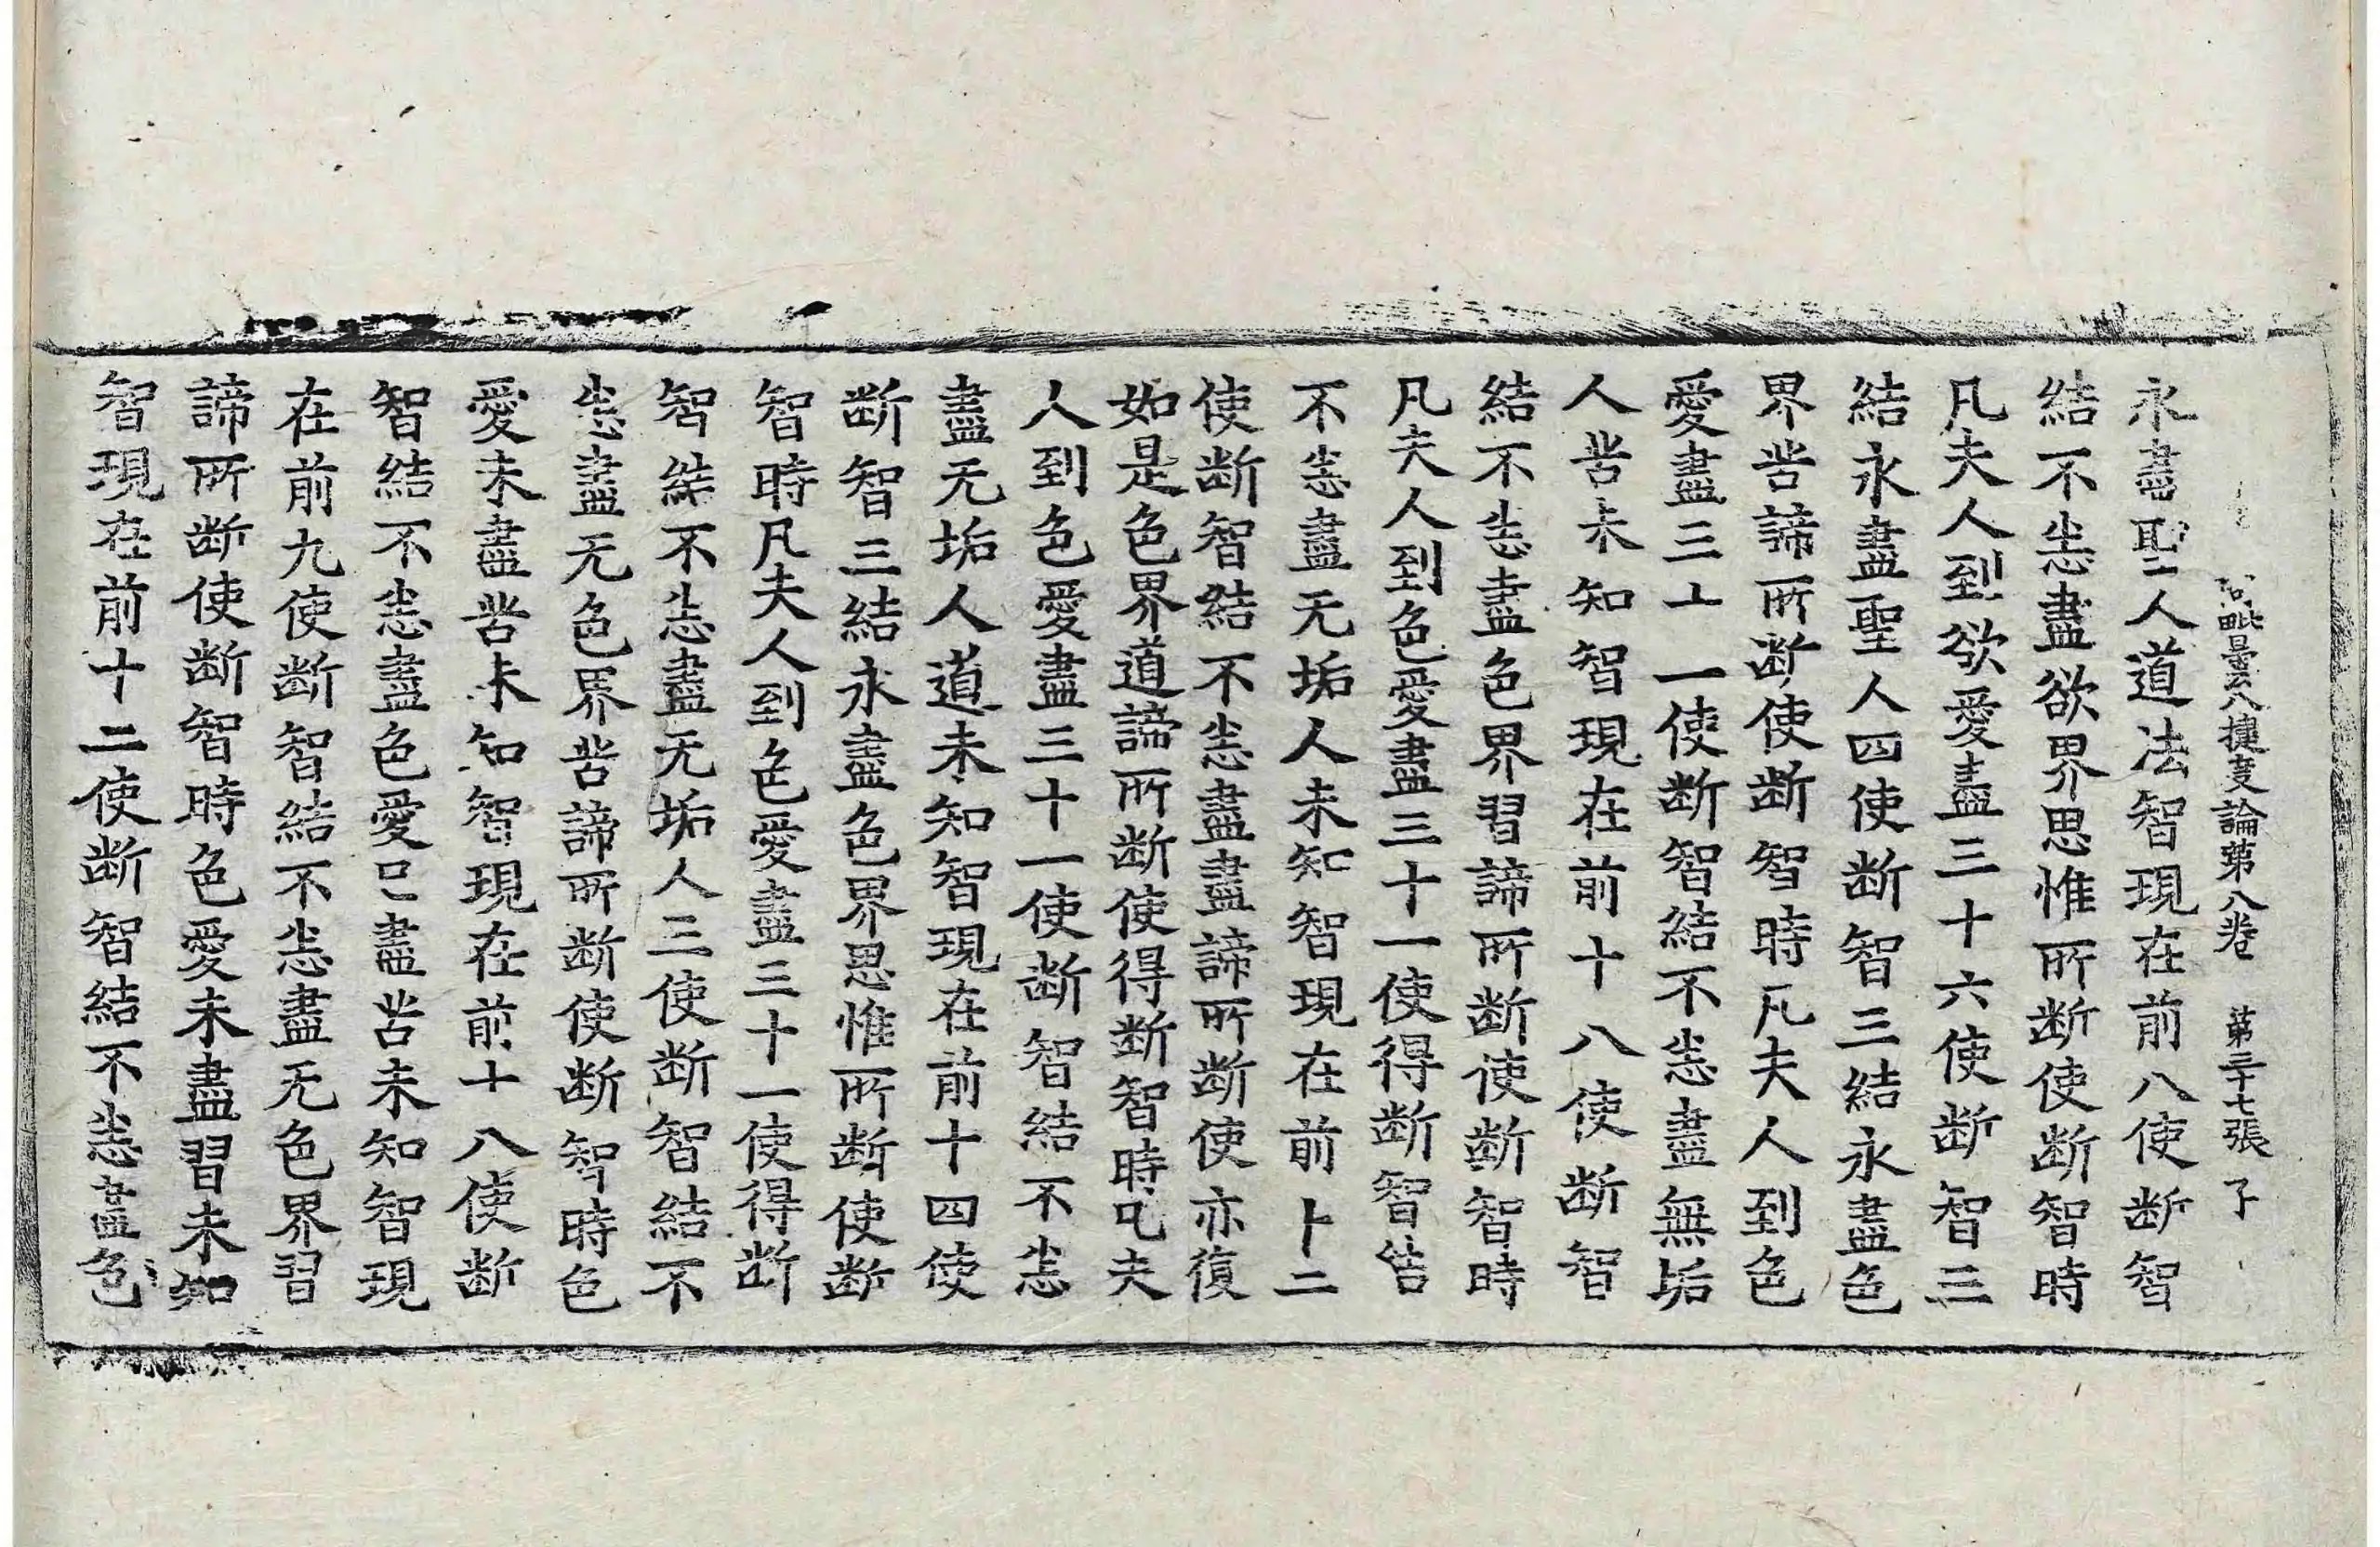 阿毗曇八揵度論第八卷 第三十七張 子
永盡聖人道法智現在前八使断智
結不𢘻盡欲界思惟所断使断智時
凡夫人到欲愛盡三十六使断智三
結永盡聖人四使断智三結永盡色
界苦諦所断使断智時凡夫人到色
愛盡三十一使断智結不𢘻盡無垢
人苦未知智現在前十八使断智
結不𢘻盡色界習諦所断使断智時
凡夫人到色愛盡三十一使得断智結
不𢘻盡无垢人未知智現在前十二
使断智結不𢘻盡盡諦所断使亦復
如是色界道諦所断使得断智時凡夫
人到色愛盡三十一使断智結不𢘻
盡无垢人道未知智現在前十四使
断智三結永盡色界思惟所断使断
智時凡夫人到色愛盡三十一使得断
智結不𢘻盡无垢人三使断智結不
𢘻盡无色界苦諦所断使断智時色
愛未盡苦未知智現在前十八使断
智結不𢘻盡色愛已盡苦未知智現
在前九使断智結不𢘻盡无色界習
諦所断使断智時色愛未盡習未知
智現在前十二使断智結不𢘻盡色